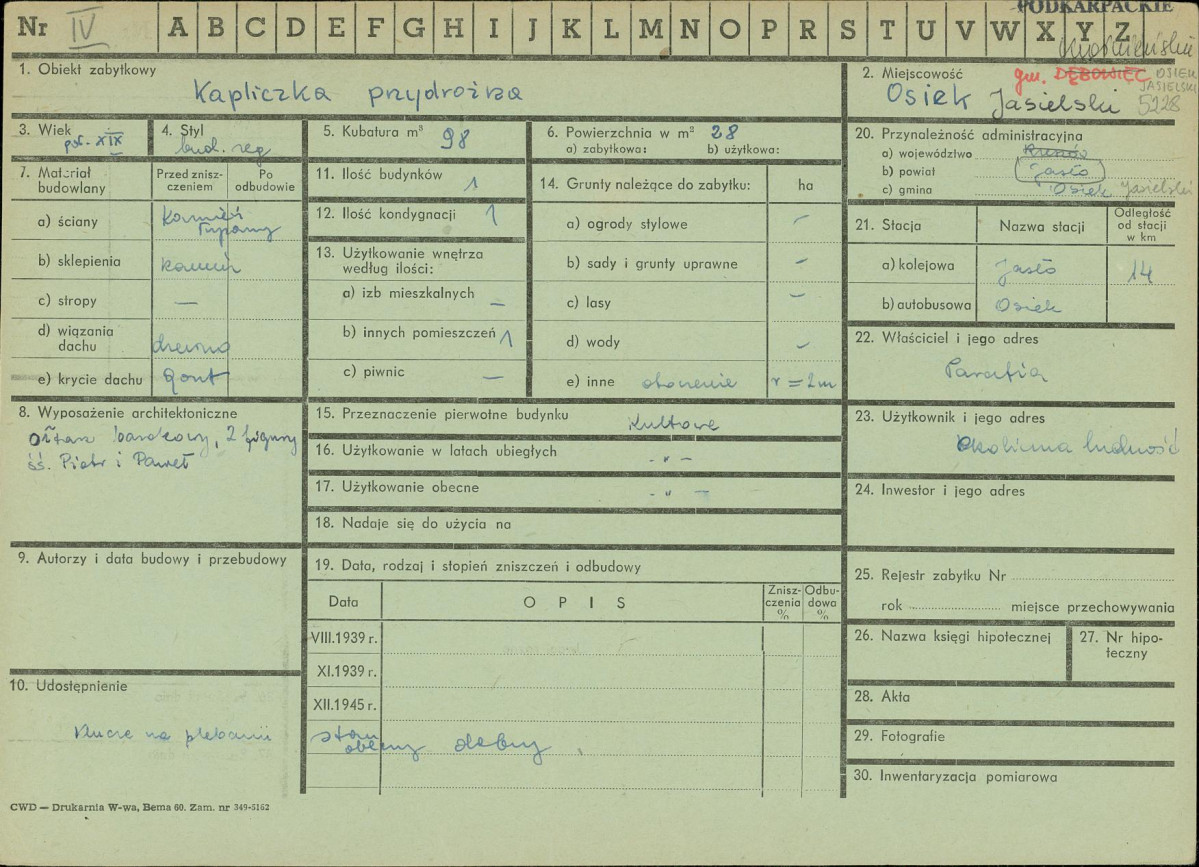 PODKARPACKIE
Nr IV A B C D E F G H I J K L M N O P R S T U V W X Y Z
1. Obiekt zabytkowy
Kapliczka przydrożna
2. Miejscowość
gm. DĘBOWIEC OSIEK
JASIELSKI
Osiek Jasielski 5228
3. Wiek
poł. XIX
4. Styl
bud. reg
5. Kubatura m³ 98
6. Powierzchnia w m² 28
a) zabytkowa: b) użytkowa:
7. Materiał
budowlany
Przed znisz-
czeniem
Po
odbudowie
a) ściany kamień
b) sklepienia kamień
c) stropy —
d) wiązania
dachu drewno
e) krycie dachu gont
8. Wyposażenie architektoniczne
ołtarz barokowy, 2 figury
śś. Piotr i Paweł
9. Autorzy i data budowy i przebudowy
10. Udostępnienie
Klucze na plebanii
11. Ilość budynków 1
12. Ilość kondygnacji 1
13. Użytkowanie wnętrza
według ilości:
a) izb mieszkalnych —
b) innych pomieszczeń 1
c) piwnic —
14. Grunty należące do zabytku: ha
a) ogrody stylowe –
b) sady i grunty uprawne –
c) lasy –
d) wody –
e) inne otoczenie r = 2m
15. Przeznaczenie pierwotne budynku Kultowe
16. Użytkowanie w latach ubiegłych - " -
17. Użytkowanie obecne - " -
18. Nadaje się do użycia na
19. Data, rodzaj i stopień zniszczeń i odbudowy
Data OPIS
Znisz-
czenia
%
Odbu-
dowa
%
VIII.1939 r.
XI.1939 r.
XII.1945 r.
stan
obecny dobry
20. Przynależność administracyjna
a) województwo
b) powiat Jasło
c) gmina Osiek Jasielski
21. Stacja Nazwa stacji
Odległość
od stacji
w km
a) kolejowa Jasło 14
b) autobusowa Osiek
22. Właściciel i jego adres
Parafia
23. Użytkownik i jego adres
Okoliczna ludność
24. Inwestor i jego adres
25. Rejestr zabytku Nr
rok miejsce przechowywania
26. Nazwa księgi hipotecznej
27. Nr hipo-
teczny
28. Akta
29. Fotografie
30. Inwentaryzacja pomiarowa
CWD — Drukarnia W-wa, Bema 60. Zam. nr 349-5162